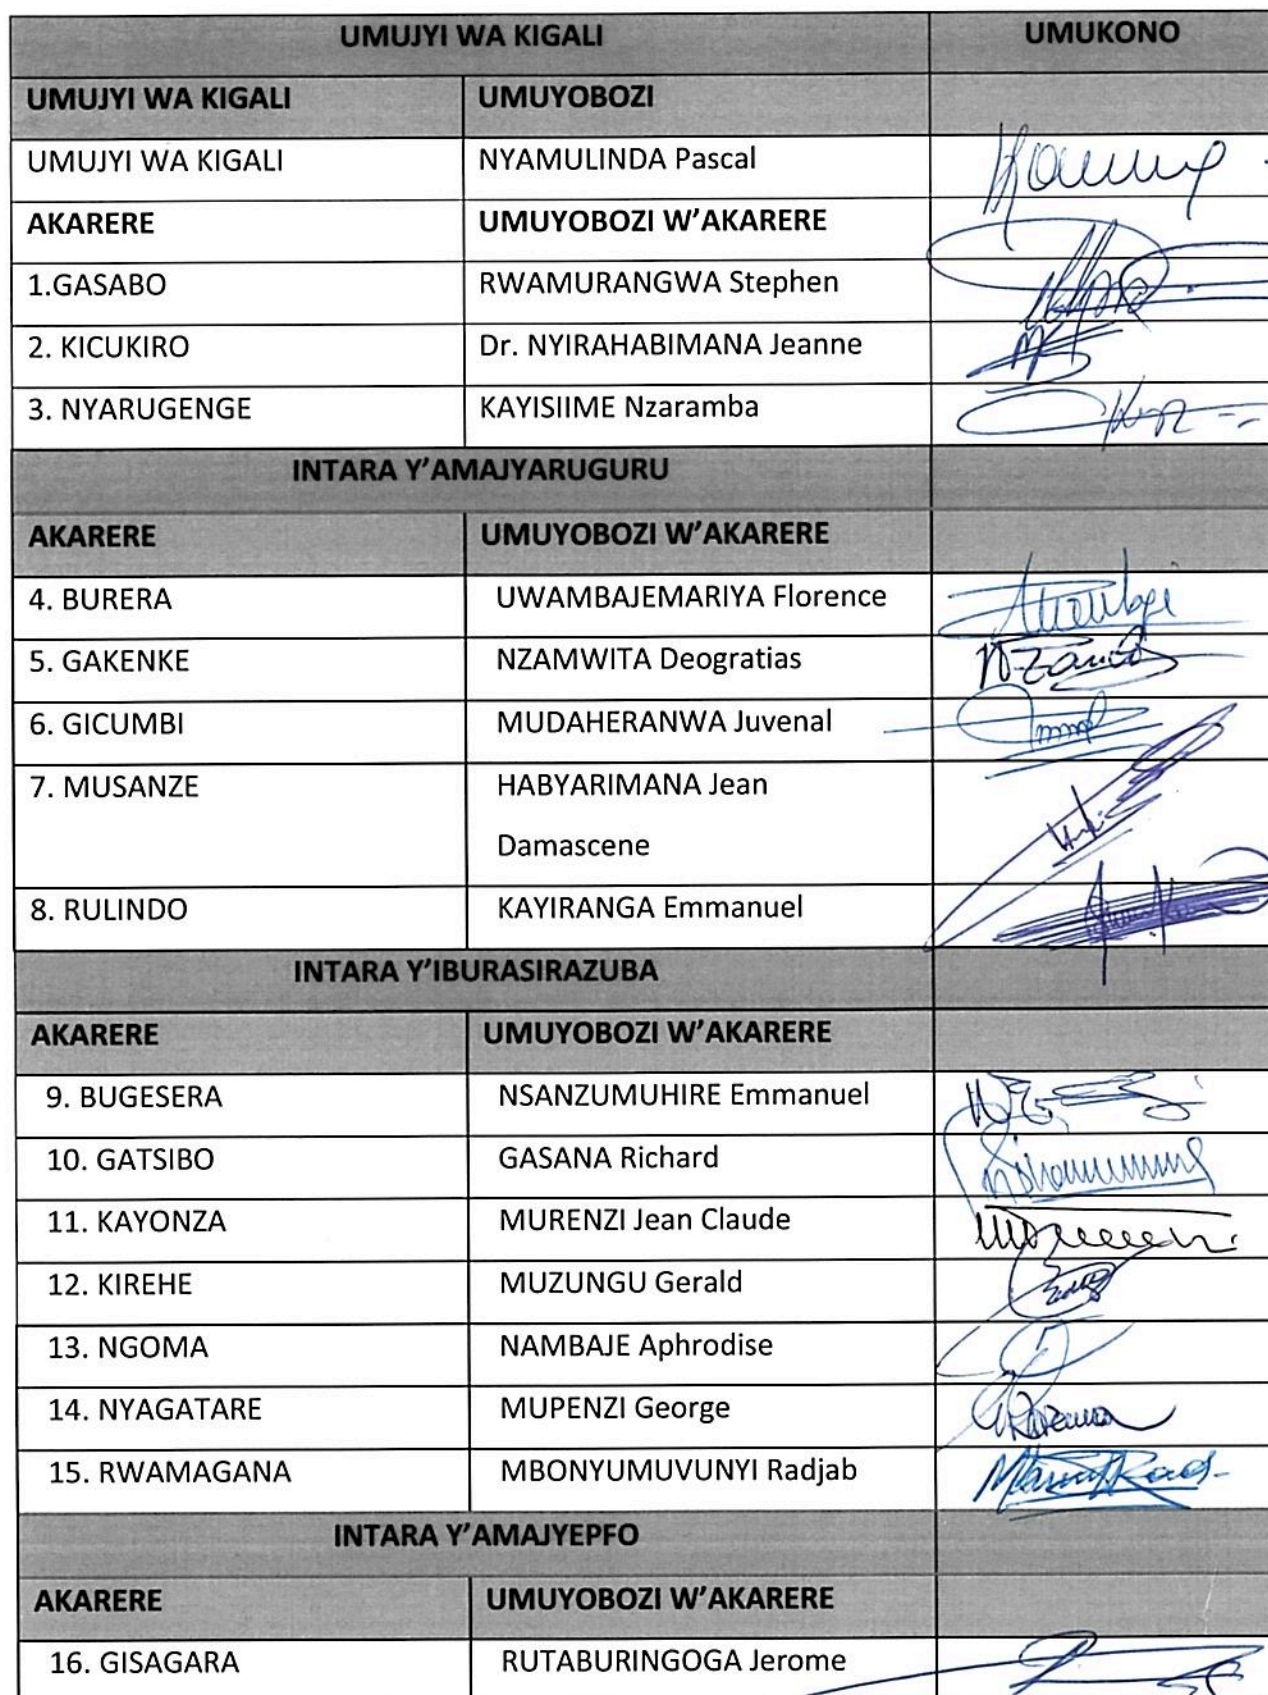 UMUJYI WA KIGALI UMUKONO
UMUJYI WA KIGALI UMUYOBOZI
UMUJYI WA KIGALI NYAMULINDA Pascal
AKARERE UMUYOBOZI W'AKARERE
1.GASABO RWAMURANGWA Stephen
2. KICUKIRO Dr. NYIRAHABIMANA Jeanne
3. NYARUGENGE KAYISIIME Nzaramba
INTARA Y'AMAJYARUGURU
AKARERE UMUYOBOZI W'AKARERE
4. BURERA UWAMBAJEMARIYA Florence
5. GAKENKE NZAMWITA Deogratias
6. GICUMBI MUDAHERANWA Juvenal
7. MUSANZE HABYARIMANA Jean
Damascene
8. RULINDO KAYIRANGA Emmanuel
INTARA Y'IBURASIRAZUBA
AKARERE UMUYOBOZI W'AKARERE
9. BUGESERA NSANZUMUHIRE Emmanuel
10. GATSIBO GASANA Richard
11. KAYONZA MURENZI Jean Claude
12. KIREHE MUZUNGU Gerald
13. NGOMA NAMBAJE Aphrodise
14. NYAGATARE MUPENZI George
15. RWAMAGANA MBONYUMUVUNYI Radjab
INTARA Y'AMAJYEPFO
AKARERE UMUYOBOZI W'AKARERE
16. GISAGARA RUTABURINGOGA Jerome